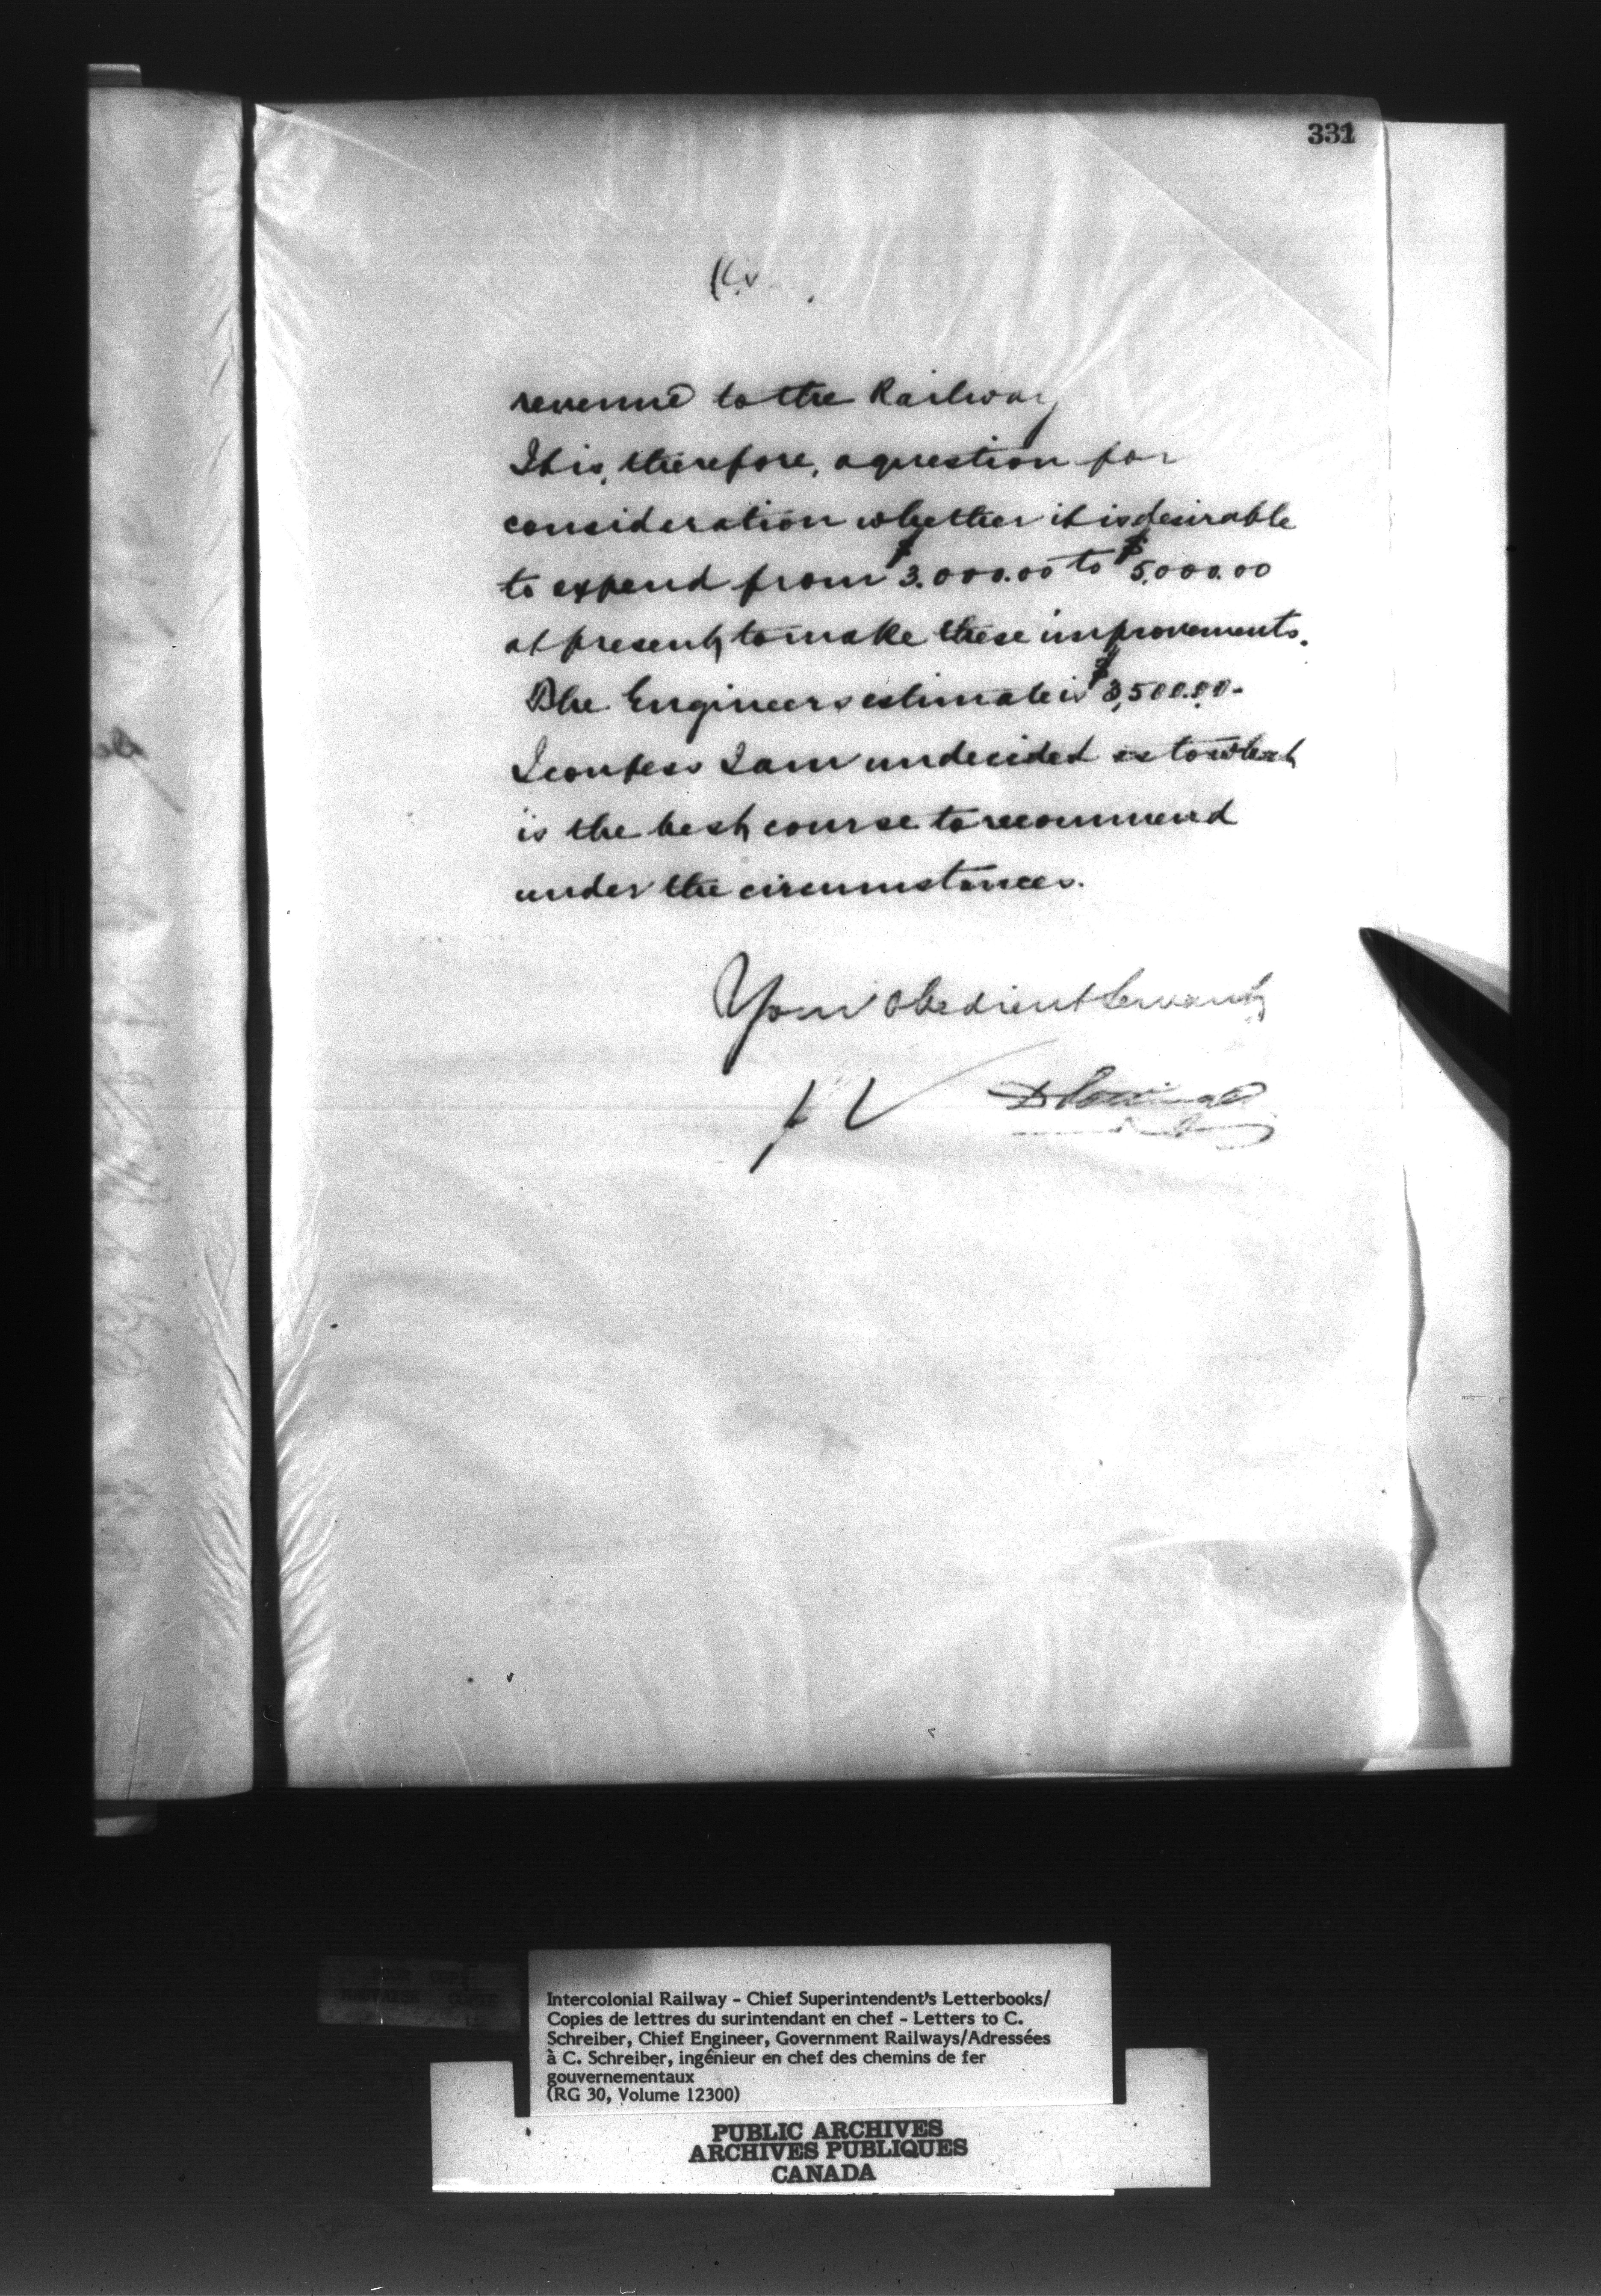 331
revenue to the Railway
It is, therefore, a question for
consideration whether it is desirable
to expend from $3.000.00 to $5,000.00
at present, to make these improvements.
The Engineers estimate is $3,500.00-
I confess I am undecided as to what
is the best course to recommend
under the circumstances.
Your Obedient Servant
D Pottinger
POOR COPY
MAUVAISE COPIE
Intercolonial Railway - Chief Superintendent's Letterbooks/
Copies de lettres du surintendant en chef - Letters to C.
Schreiber, Chief Engineer, Government Railways/Adressées
à C. Schreiber, ingénieur en chef des chemins de fer
gouvernementaux
(RG 30, Volume 12300)
PUBLIC ARCHIVES
ARCHIVES PUBLIQUES
CANADA